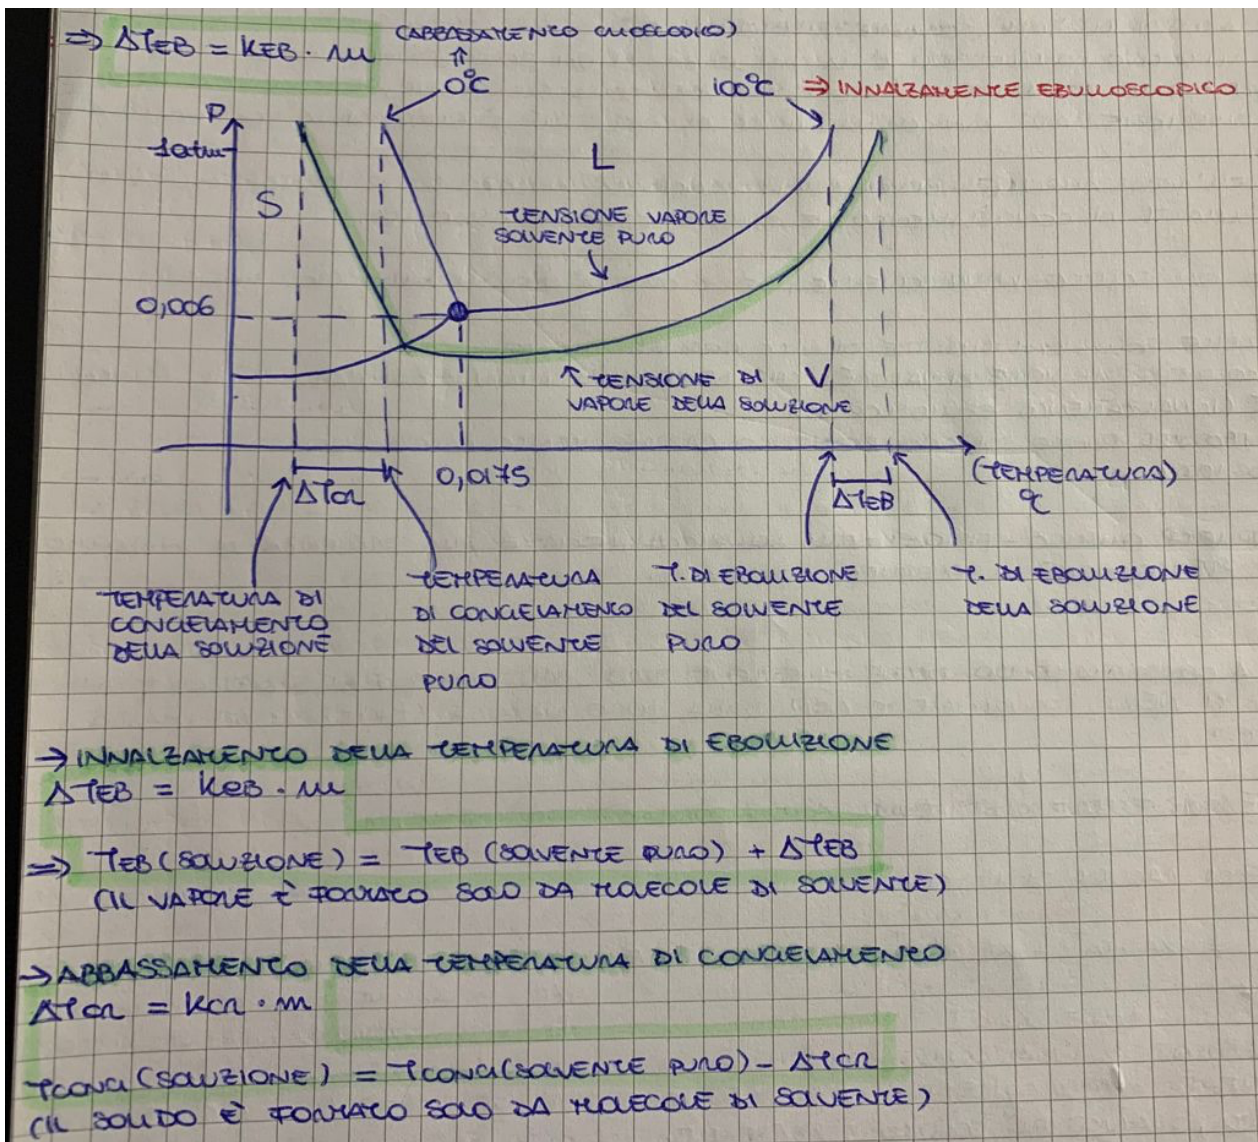 ⇒ ΔTEB = KEB · m
(ABBASSAMENTO CRIOSCOPICO)
⇑
0°C
100°C ⇒ INNALZAMENTE EBULLOSCOPICO
P
1atm
S
L
TENSIONE VAPORE
SOLVENTE PURO
0,006
↑ TENSIONE DI
VAPORE DELLA SOLUZIONE
V
0,0175
(TEMPERATURA)
°C
ΔTCR
ΔTEB
TEMPERATURA DI
CONGELAMENTO
DELLA SOLUZIONE
TEMPERATURA
DI CONGELAMENTO
DEL SOLVENTE
PURO
T. DI EBOLLIZIONE
DEL SOLVENTE
PURO
T. DI EBOLLIZIONE
DELLA SOLUZIONE
→ INNALZAMENTO DELLA TEMPERATURA DI EBOLLIZIONE
ΔTEB = KEB · m
⇒ TEB (SOLUZIONE) = TEB (SOLVENTE PURO) + ΔTEB
(IL VAPORE È FORMATO SOLO DA MOLECOLE DI SOLVENTE)
→ ABBASSAMENTO DELLA TEMPERATURA DI CONGELAMENTO
ΔTCR = KCR · m
TCONG (SOLUZIONE) = TCONG (SOLVENTE PURO) - ΔTCR
(IL SOLIDO È FORMATO SOLO DA MOLECOLE DI SOLVENTE)